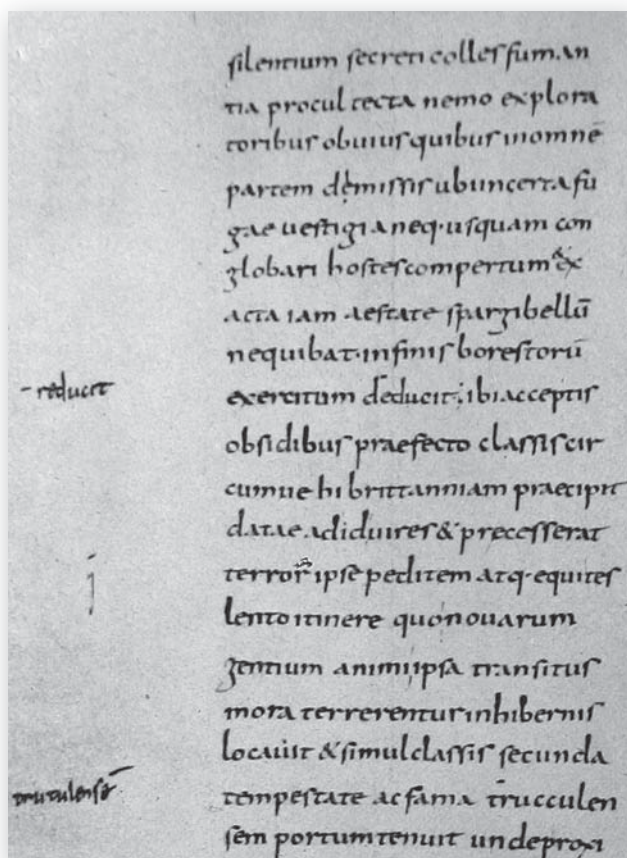 silentium secreti colles fuman
tia procul tecta nemo explora
toribus obuius quibus in omnē
partem demissis ubi incerta fu
gae uestigia neq· usquam con
globari hostes compertum & ex
acta iam aestate spargi bellū
nequibat· in finis borestorū
- reducit
exercitum deducit; ibi acceptis
obsidibus praefecto classis cir
cumuehi brittanniam praecipit
datae ad id uires & precesserat
terror ipse peditem atq· equites
lento itinere quo nouarum
gentium animi ipsa transitus
mora terrerentur in hibernis
locauit & simul classis secunda
trutulensē
tempestate ac fama trucculen
sem portum tenuit unde proxi